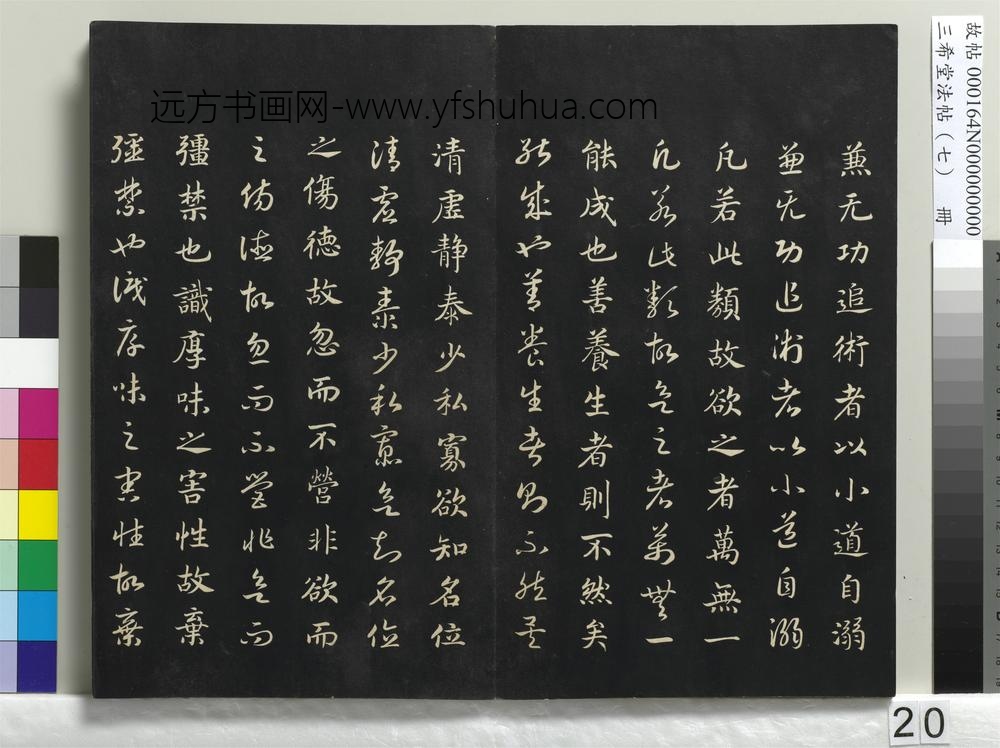 兼无功追術者以小道自溺
兼无功追術者以小道自溺
凡若此類故欲之者萬無一
凡若此類故欲之者萬無一
能成也善養生者則不然矣
能成也善養生者則不然矣
清虛静泰少私寡欲知名位
清虛静泰少私寡欲知名位
之傷德故忽而不營非欲而
之傷德故忽而不營非欲而
彊禁也識厚味之害性故棄
彊禁也識厚味之害性故棄
远方书画网-www.yfshuhua.com
故帖 000164N000000000
三希堂法帖(七) 冊
20